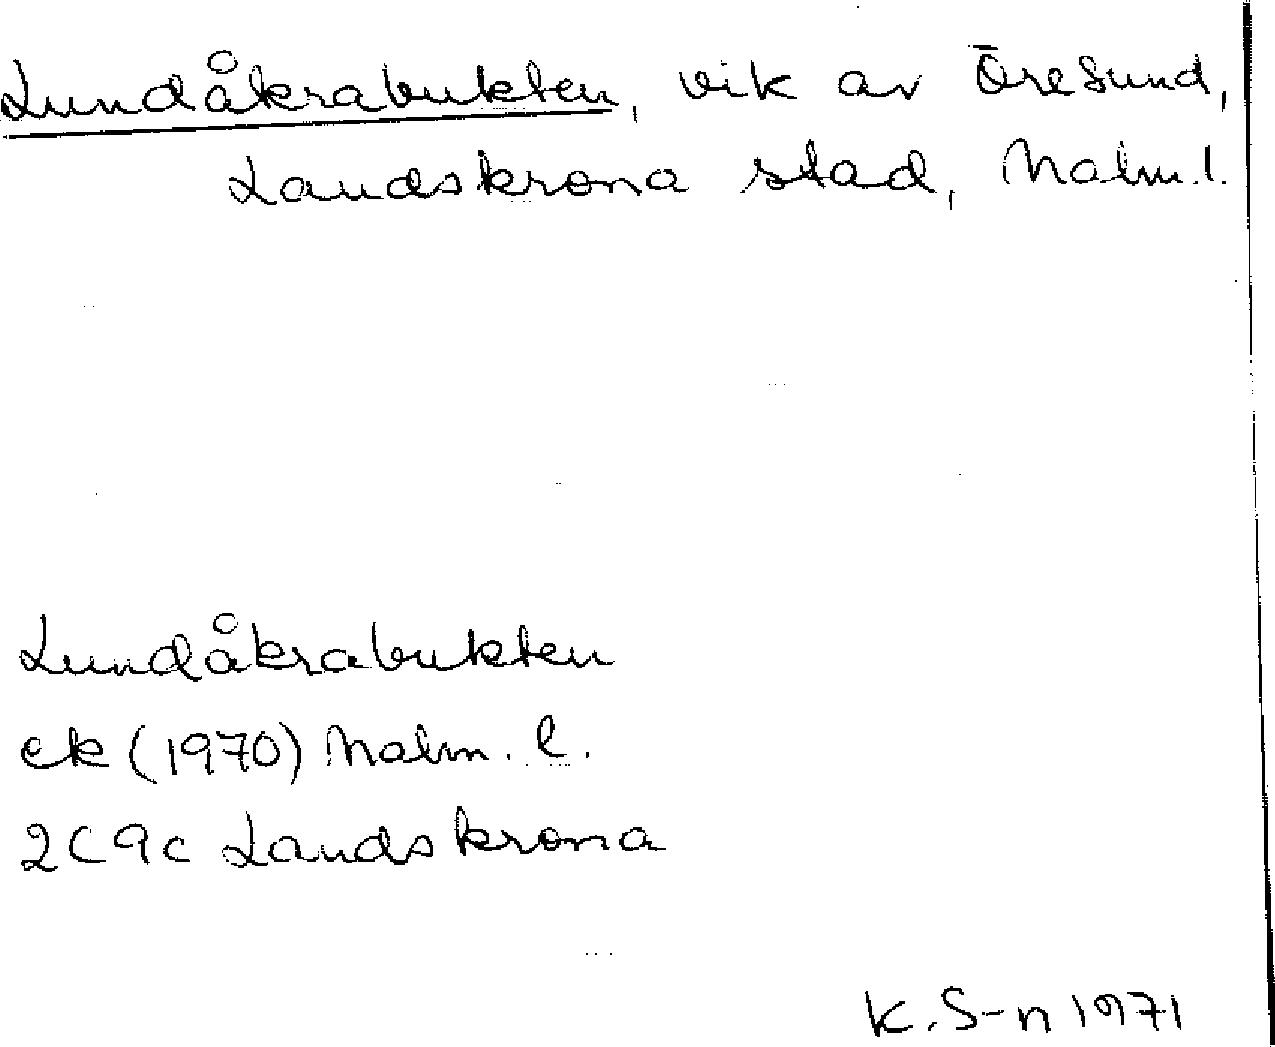 Lundåkrabukten, vik av Öresund,
Landskrona stad, Malm. l.
Lundåkrabukten
ek (1970) Malm. l.
2C 9c Landskrona
K. S-n 1971